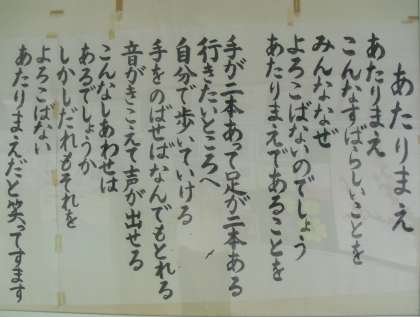 あたりまえ
あたりまえ
こんなすばらしいことを
みんななぜ
よろこばないのでしょう
あたりまえであることを
手が二本あって足が二本ある
行きたいところへ
自分で歩いていける
手をのばせばなんでもとれる
音がきこえて声が出せる
こんなしあわせは
あるでしょうか
しかしだれもそれを
よろこばない
あたりまえだと笑ってすます